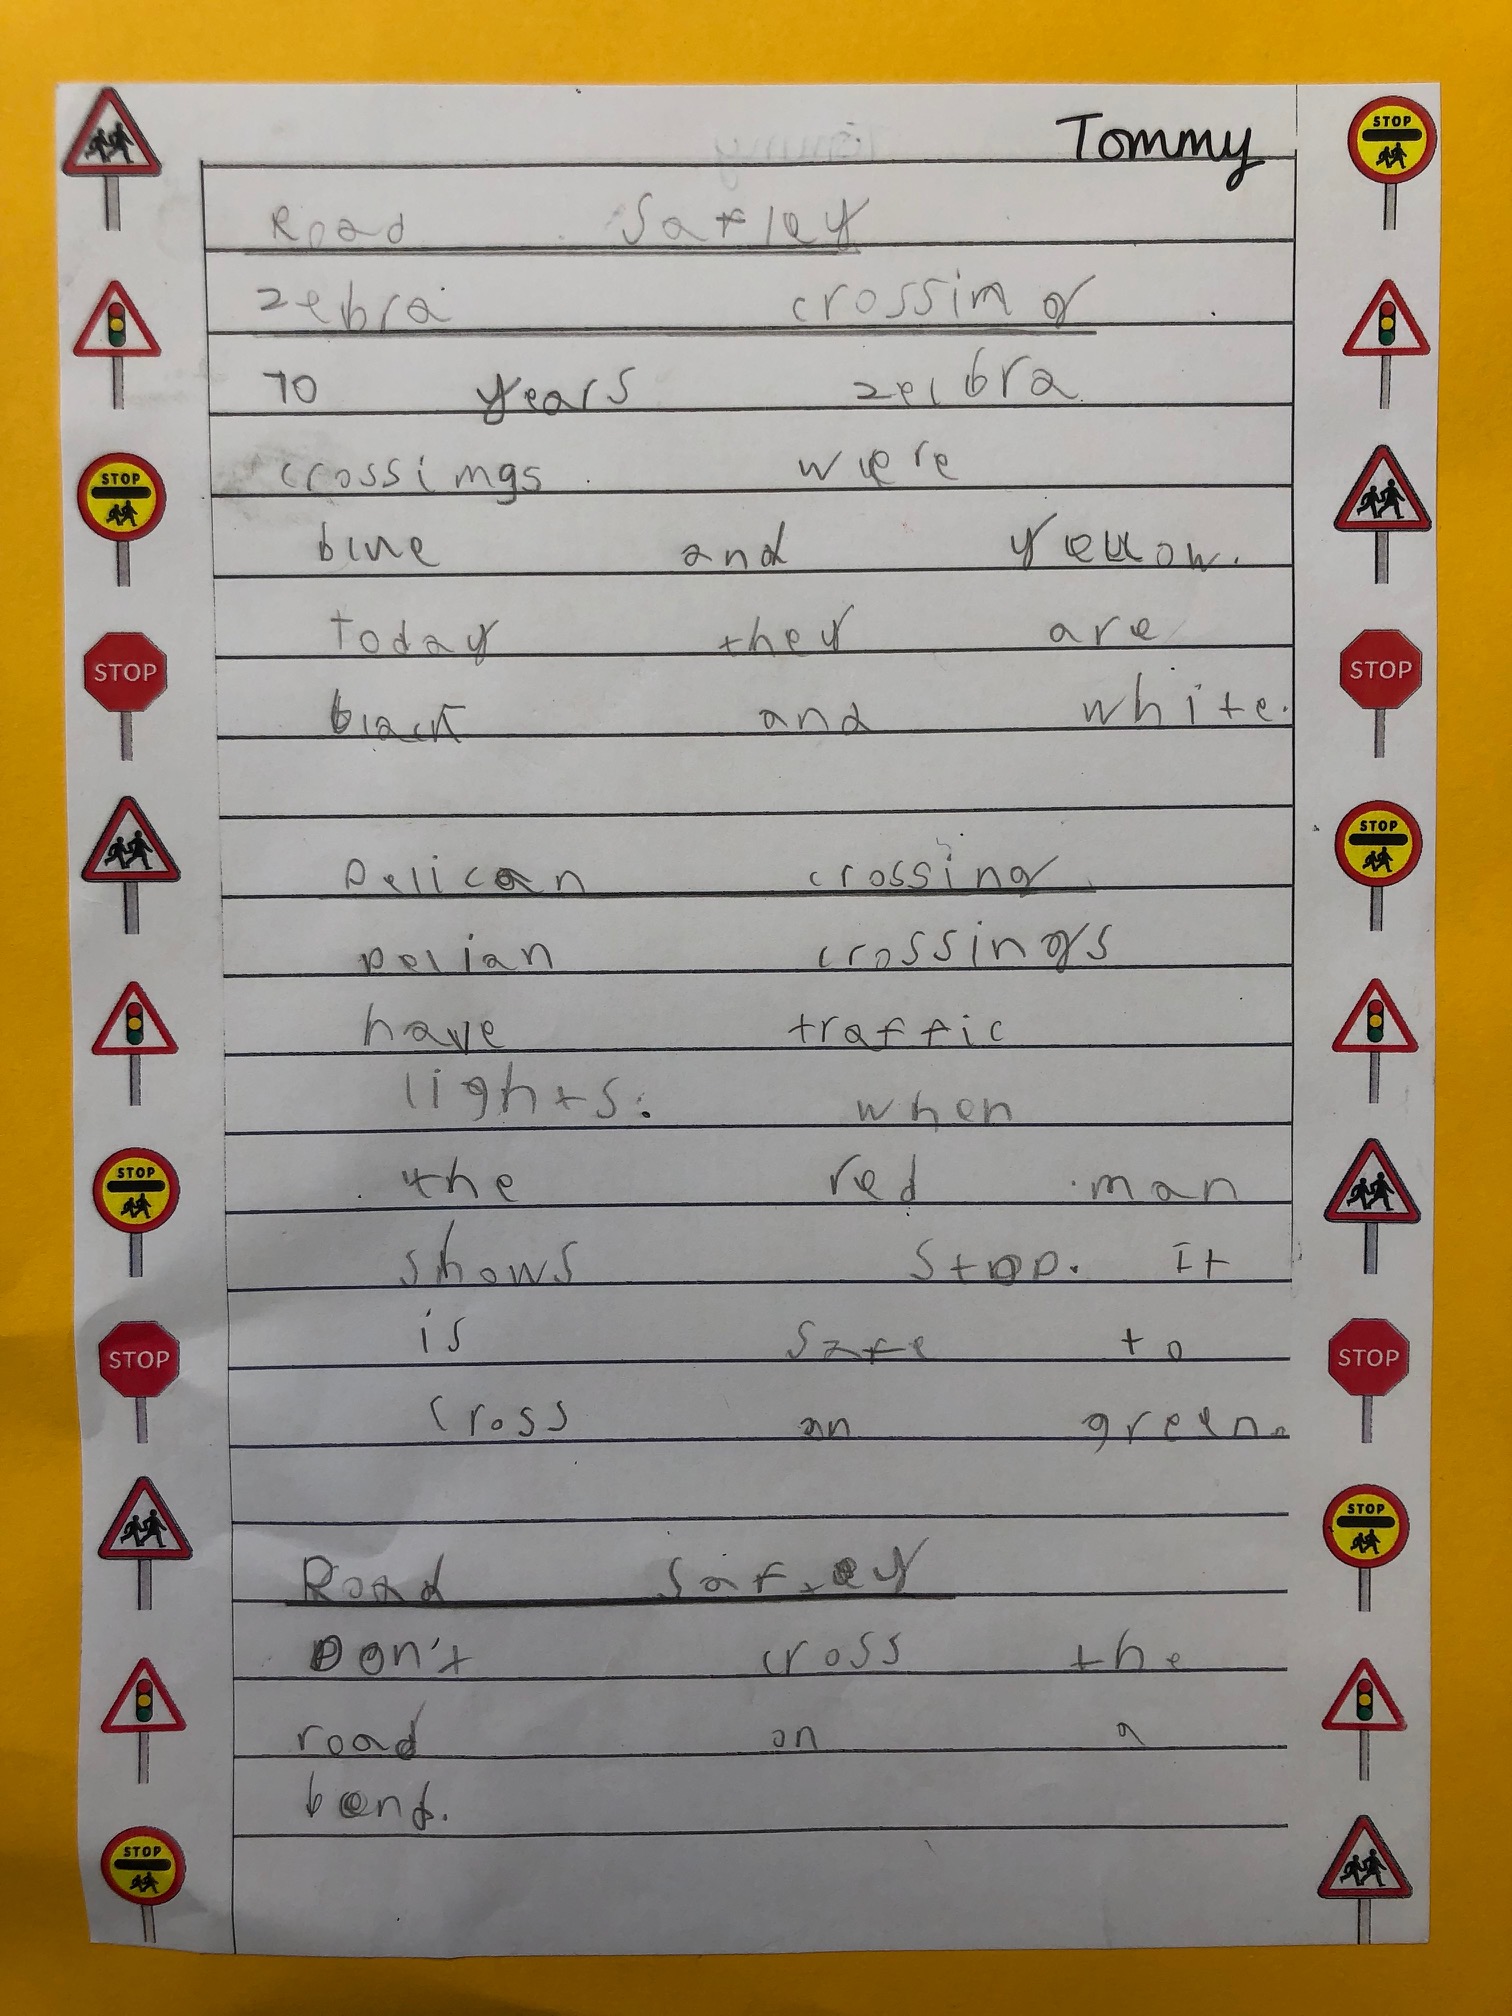 Tommy
Road Saftey
zebra crossing
70 years zebra
crossings were
blue and yellow.
Today they are
black and white.
pelican crossing
pelian crossings
have traffic
lights. when
the red man
shows stop. It
is safe to
cross on green.
Road Saftey
Don't cross the
road on a
bend.
STOP
STOP
STOP
STOP
STOP
STOP
STOP
STOP
STOP
STOP